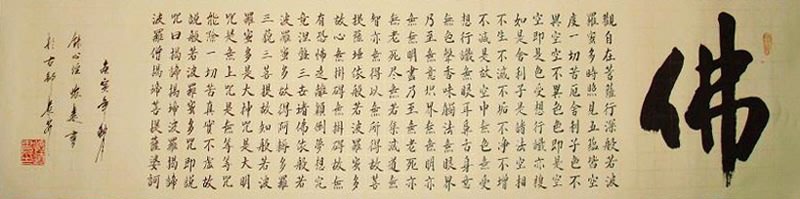 佛
觀自在菩薩行深般若波
羅蜜多時照見五蘊皆空
度一切苦厄舍利子色不
異空空不異色色即是空
空即是色受想行識亦復
如是舍利子是諸法空相
不生不滅不垢不淨不增
不減是故空中無色無受
想行識無眼耳鼻舌身意
無色聲香味觸法無眼界
乃至無意識界無無明亦
無無明盡乃至無老死亦
無老死盡無苦集滅道無
智亦無得以無所得故菩
提薩埵依般若波羅蜜多
故心無掛碍無掛碍故無
有恐怖遠離顛倒夢想究
竟涅槃三世諸佛依般若
波羅蜜多故得阿耨多羅
三藐三菩提故知般若波
羅蜜多是大神咒是大明
咒是無上咒是無等等咒
能除一切苦真實不虛故
說般若波羅蜜多咒即說
咒曰揭諦揭諦波羅揭諦
波羅僧揭諦菩提薩婆訶
庚寅年
心經